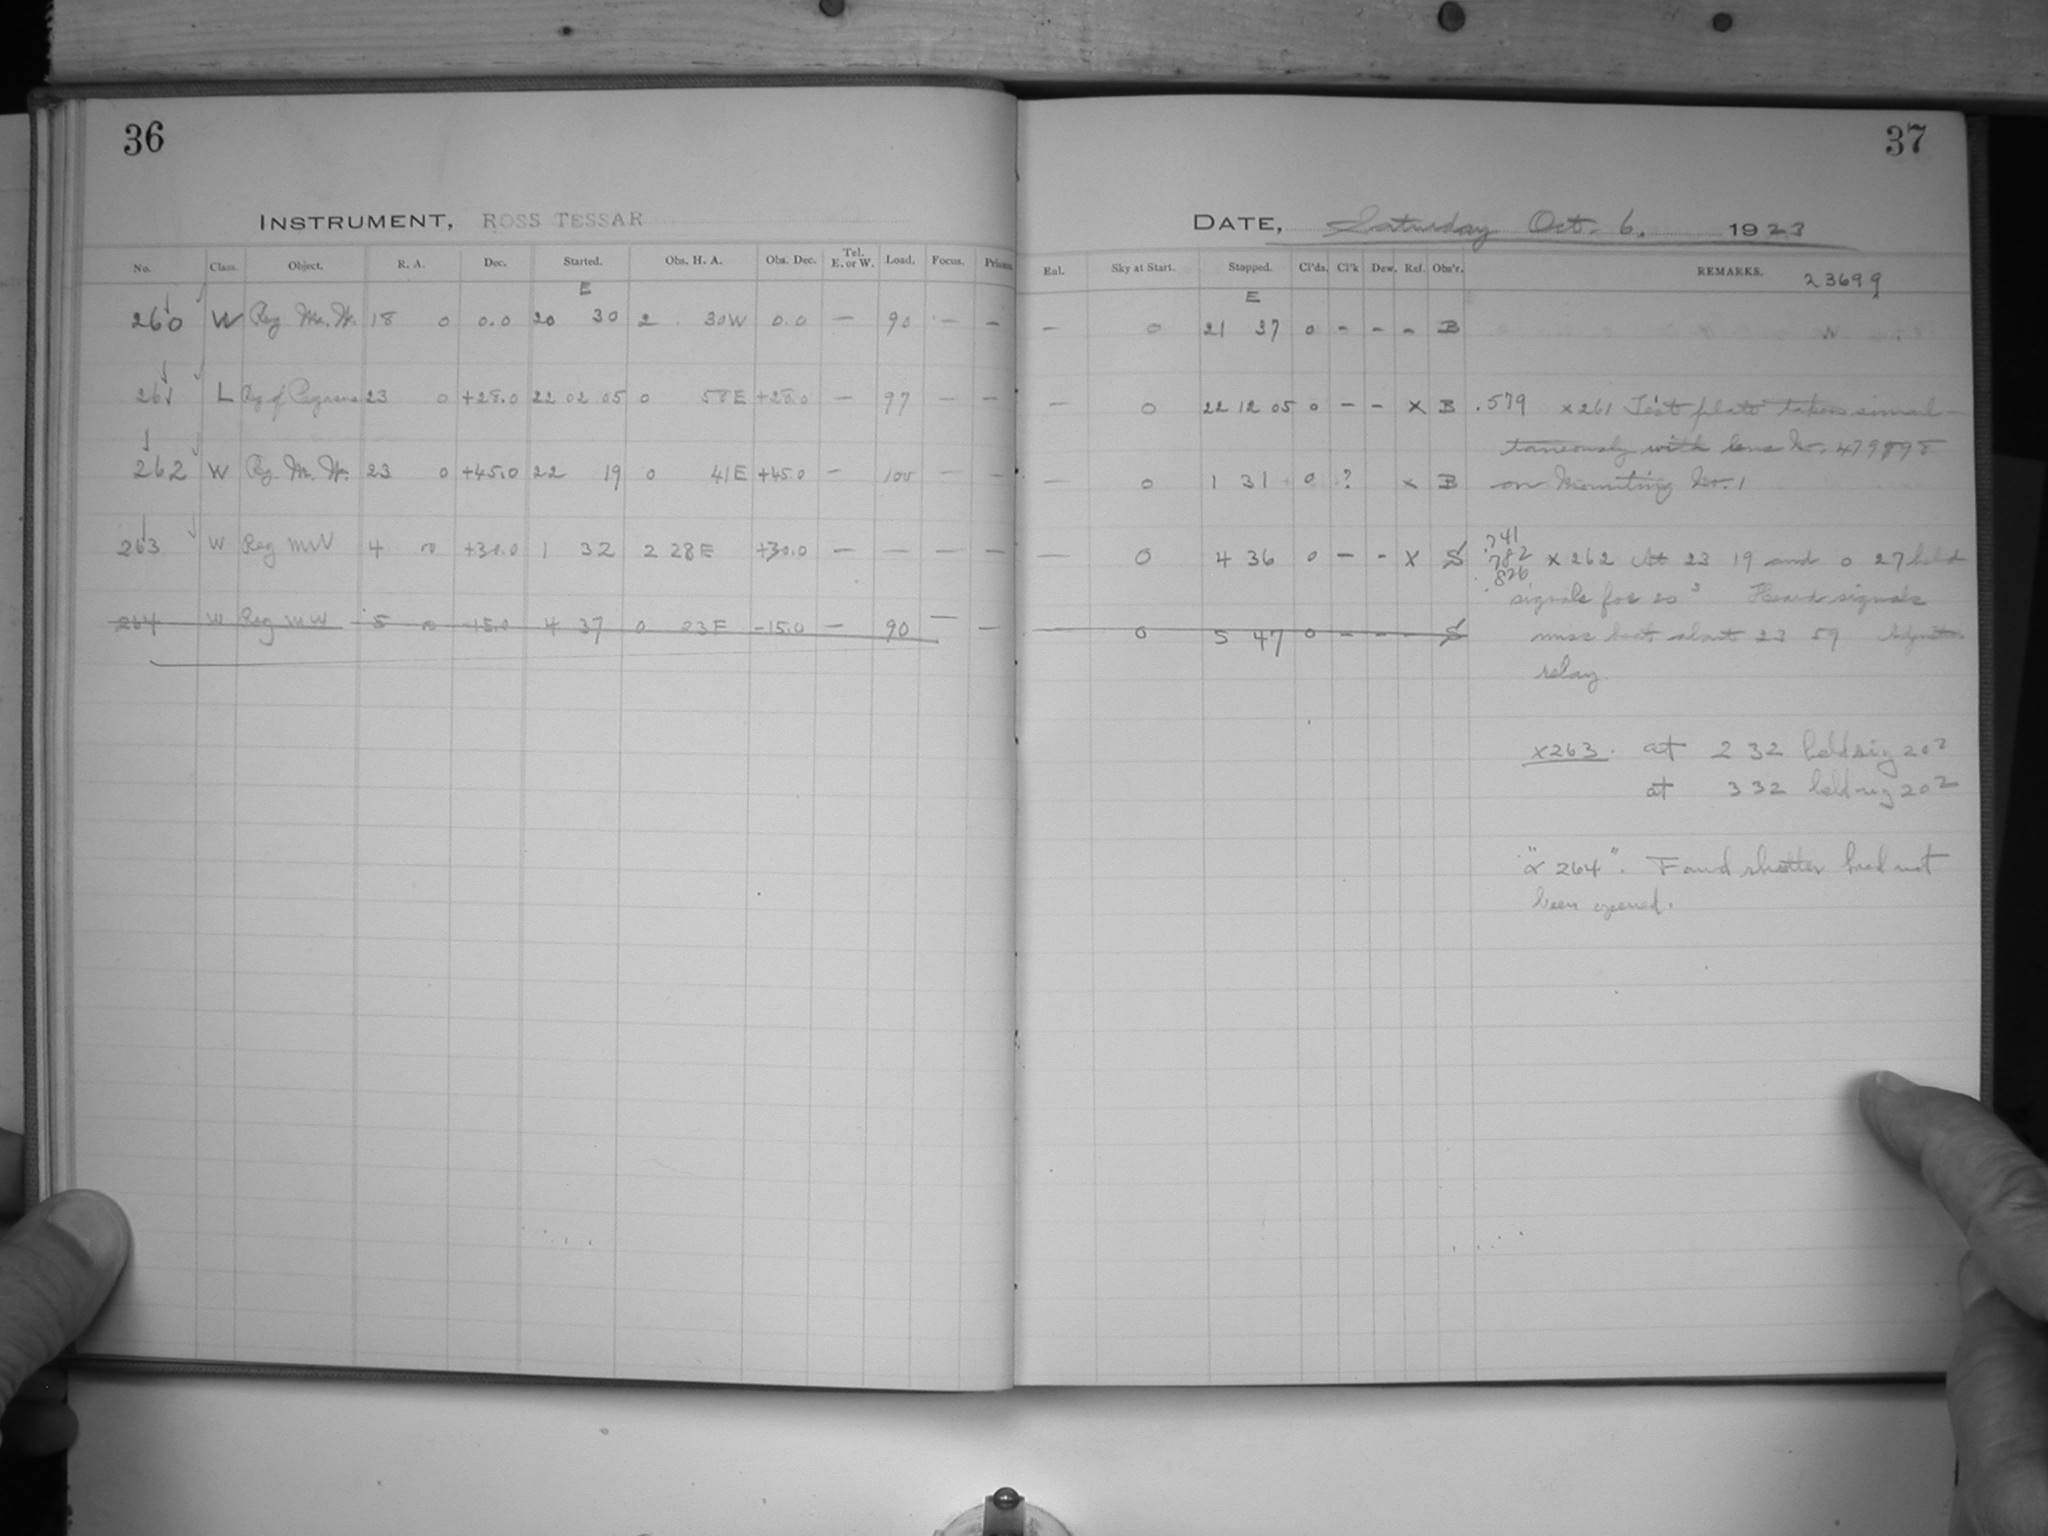 36
INSTRUMENT, ROSS TESSAR
No. Class. Object. R. A. Dec. Started. Obs. H. A. Obs. Dec. Tel. E. or W. Load. Focus. Prisms.
E
260 W Reg. M. W. 18 0 0.0 20 30 2 30W 0.0 — 90 — —
261 L Reg of Pegasus 23 0 +28.0 22 02 05 0 58E +28.0 — 97 — —
262 W Reg. M. W. 23 0 +45.0 22 19 0 41E +45.0 — 100 — —
263 W Reg MW 4 0 +30.0 1 32 2 28E +30.0 — — — —
264 W Reg MW 5 0 -15.0 4 37 0 23E -15.0 — 90 — —
37
DATE, Saturday Oct. 6. 1923
Eal. Sky at Start. Stopped. Cl'ds. Cl'k Dew. Ref. Obs'r. REMARKS. 23699
E
— 0 21 37 0 - - - B
— 0 22 12 05 0 - - X B .579 x261 Test plate taken simul-
taneously with lens No. 479898
— 0 1 31 0 ? x B on Mounting No. 1
.741
.782
.826
— 0 4 36 0 - - X S x262 At 23 19 and 0 27 held
signals for 20 s Heard signals
— 0 5 47 0 - - - S miss beat about 23 59
relay
x263. at 2 32 held sig 20
at 3 32 held sig 20
"x 264". Found shutter had not
been opened.